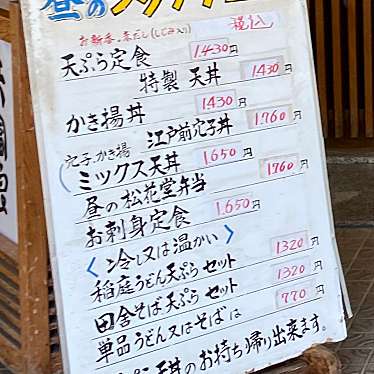 昼の
税込
お新香・赤だし(しじみ入り)
天ぷら定食 1430円
特製 天丼 1430円
かき揚丼 1430円
江戸前穴子丼 1760円
穴子、かき揚
(ミックス天丼 1650円
昼の松花堂弁当 1760円
お刺身定食 1650円
<冷し又は温かい>
稲庭うどん天ぷらセット 1320円
田舎そば天ぷらセット 1320円
単品うどん又はそばは 770円
天丼のお持ち帰り出来ます。